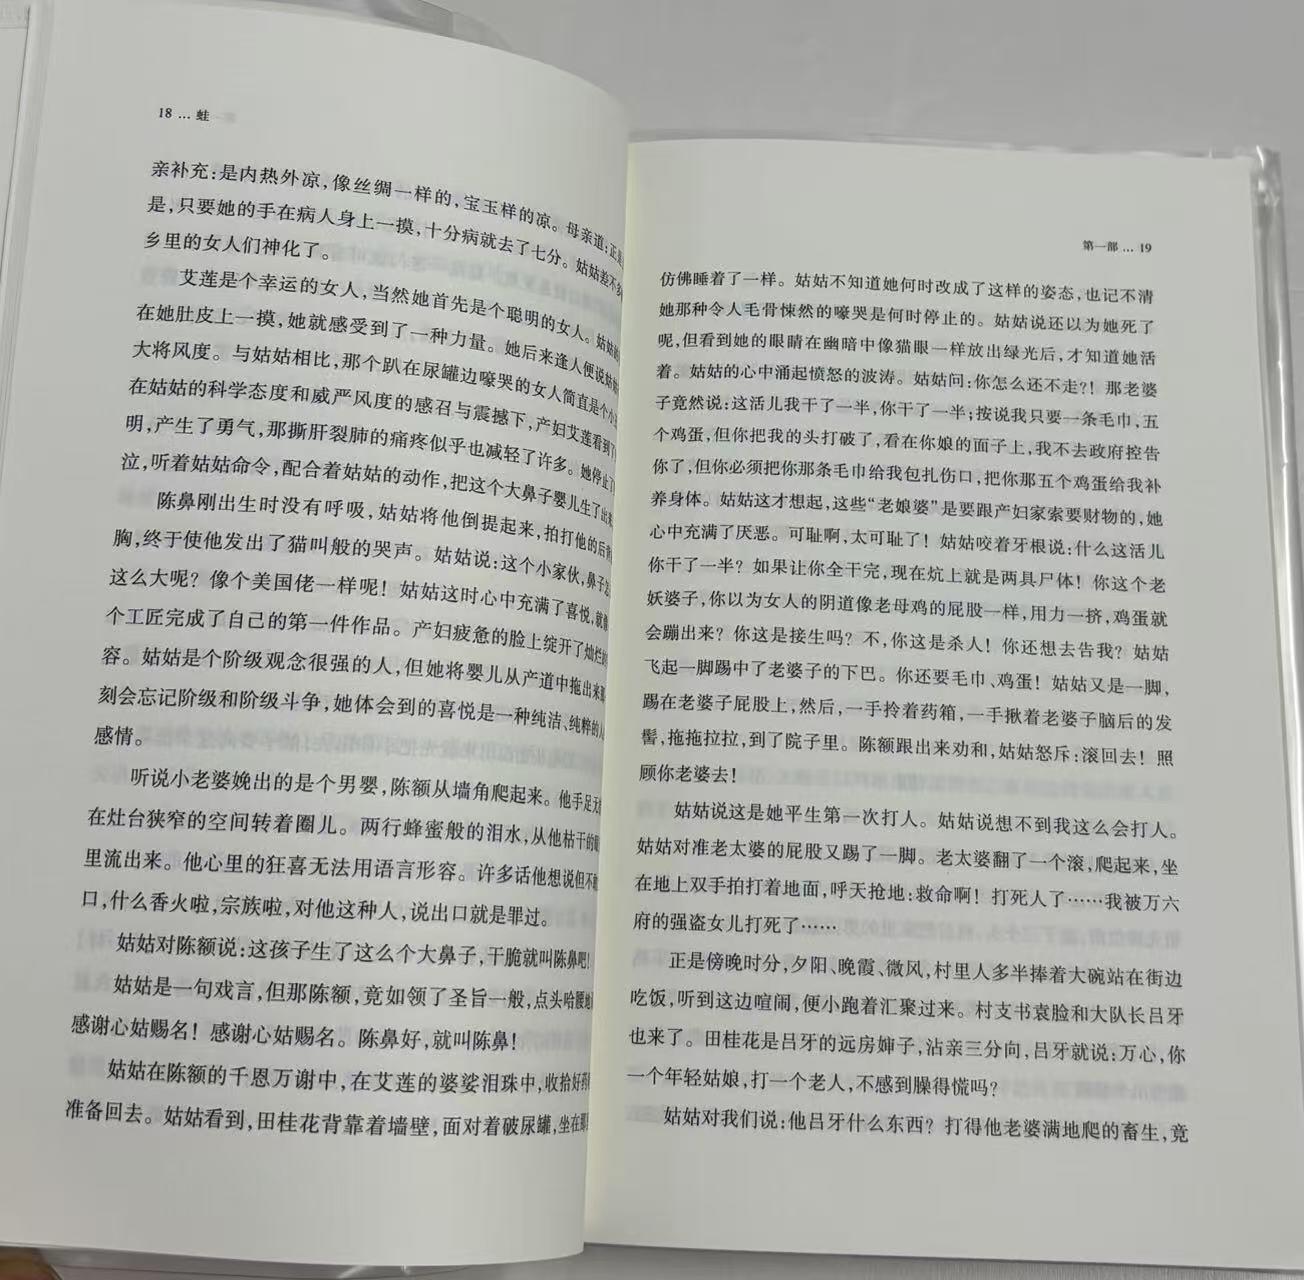 18 … 蛙
亲补充：是内热外凉，像丝绸一样的，宝玉样的凉。母亲道：正是
是，只要她的手在病人身上一摸，十分病就去了七分。姑姑差不多
乡里的女人们神化了。
艾莲是个幸运的女人，当然她首先是个聪明的女人。姑姑的
在她肚皮上一摸，她就感受到了一种力量。她后来逢人便说姑姑
大将风度。与姑姑相比，那个趴在尿罐边嚎哭的女人简直是个小
在姑姑的科学态度和威严风度的感召与震撼下，产妇艾莲看到了
明，产生了勇气，那撕肝裂肺的痛疼似乎也减轻了许多。她停止了
泣，听着姑姑命令，配合着姑姑的动作，把这个大鼻子婴儿生了出来
陈鼻刚出生时没有呼吸，姑姑将他倒提起来，拍打他的后背
胸，终于使他发出了猫叫般的哭声。姑姑说：这个小家伙，鼻子怎
这么大呢？像个美国佬一样呢！姑姑这时心中充满了喜悦，就像
个工匠完成了自己的第一件作品。产妇疲惫的脸上绽开了灿烂的
容。姑姑是个阶级观念很强的人，但她将婴儿从产道中拖出来那
刻会忘记阶级和阶级斗争，她体会到的喜悦是一种纯洁、纯粹的人
感情。
听说小老婆娩出的是个男婴，陈额从墙角爬起来。他手足无
在灶台狭窄的空间转着圈儿。两行蜂蜜般的泪水，从他枯干的眼
里流出来。他心里的狂喜无法用语言形容。许多话他想说但不敢
口，什么香火啦，宗族啦，对他这种人，说出口就是罪过。
姑姑对陈额说：这孩子生了这么个大鼻子，干脆就叫陈鼻吧！
姑姑是一句戏言，但那陈额，竟如领了圣旨一般，点头哈腰地
感谢心姑赐名！感谢心姑赐名。陈鼻好，就叫陈鼻！
姑姑在陈额的千恩万谢中，在艾莲的婆娑泪珠中，收拾好药箱
准备回去。姑姑看到，田桂花背靠着墙壁，面对着破尿罐，坐在那里
第一部 … 19
仿佛睡着了一样。姑姑不知道她何时改成了这样的姿态，也记不清
她那种令人毛骨悚然的嚎哭是何时停止的。姑姑说还以为她死了
呢，但看到她的眼睛在幽暗中像猫眼一样放出绿光后，才知道她活
着。姑姑的心中涌起愤怒的波涛。姑姑问：你怎么还不走？！那老婆
子竟然说：这活儿我干了一半，你干了一半；按说我只要一条毛巾，五
个鸡蛋，但你把我的头打破了，看在你娘的面子上，我不去政府控告
你了，但你必须把你那条毛巾给我包扎伤口，把你那五个鸡蛋给我补
养身体。姑姑这才想起，这些“老娘婆”是要跟产妇家索要财物的，她
心中充满了厌恶。可耻啊，太可耻了！姑姑咬着牙根说：什么这活儿
你干了一半？如果让你全干完，现在炕上就是两具尸体！你这个老
妖婆子，你以为女人的阴道像老母鸡的屁股一样，用力一挤，鸡蛋就
会蹦出来？你这是接生吗？不，你这是杀人！你还想去告我？姑姑
飞起一脚踢中了老婆子的下巴。你还要毛巾、鸡蛋！姑姑又是一脚，
踢在老婆子屁股上，然后，一手拎着药箱，一手揪着老婆子脑后的发
髻，拖拖拉拉，到了院子里。陈额跟出来劝和，姑姑怒斥：滚回去！照
顾你老婆去！
姑姑说这是她平生第一次打人。姑姑说想不到我这么会打人。
姑姑对准老太婆的屁股又踢了一脚。老太婆翻了一个滚，爬起来，坐
在地上双手拍打着地面，呼天抢地：救命啊！打死人了……我被万六
府的强盗女儿打死了……
正是傍晚时分，夕阳、晚霞、微风，村里人多半捧着大碗站在街边
吃饭，听到这边喧闹，便小跑着汇聚过来。村支书袁脸和大队长吕牙
也来了。田桂花是吕牙的远房婶子，沾亲三分向，吕牙就说：万心，你
一个年轻姑娘，打一个老人，不感到臊得慌吗？
姑姑对我们说：他吕牙什么东西？打得他老婆满地爬的畜生，竟